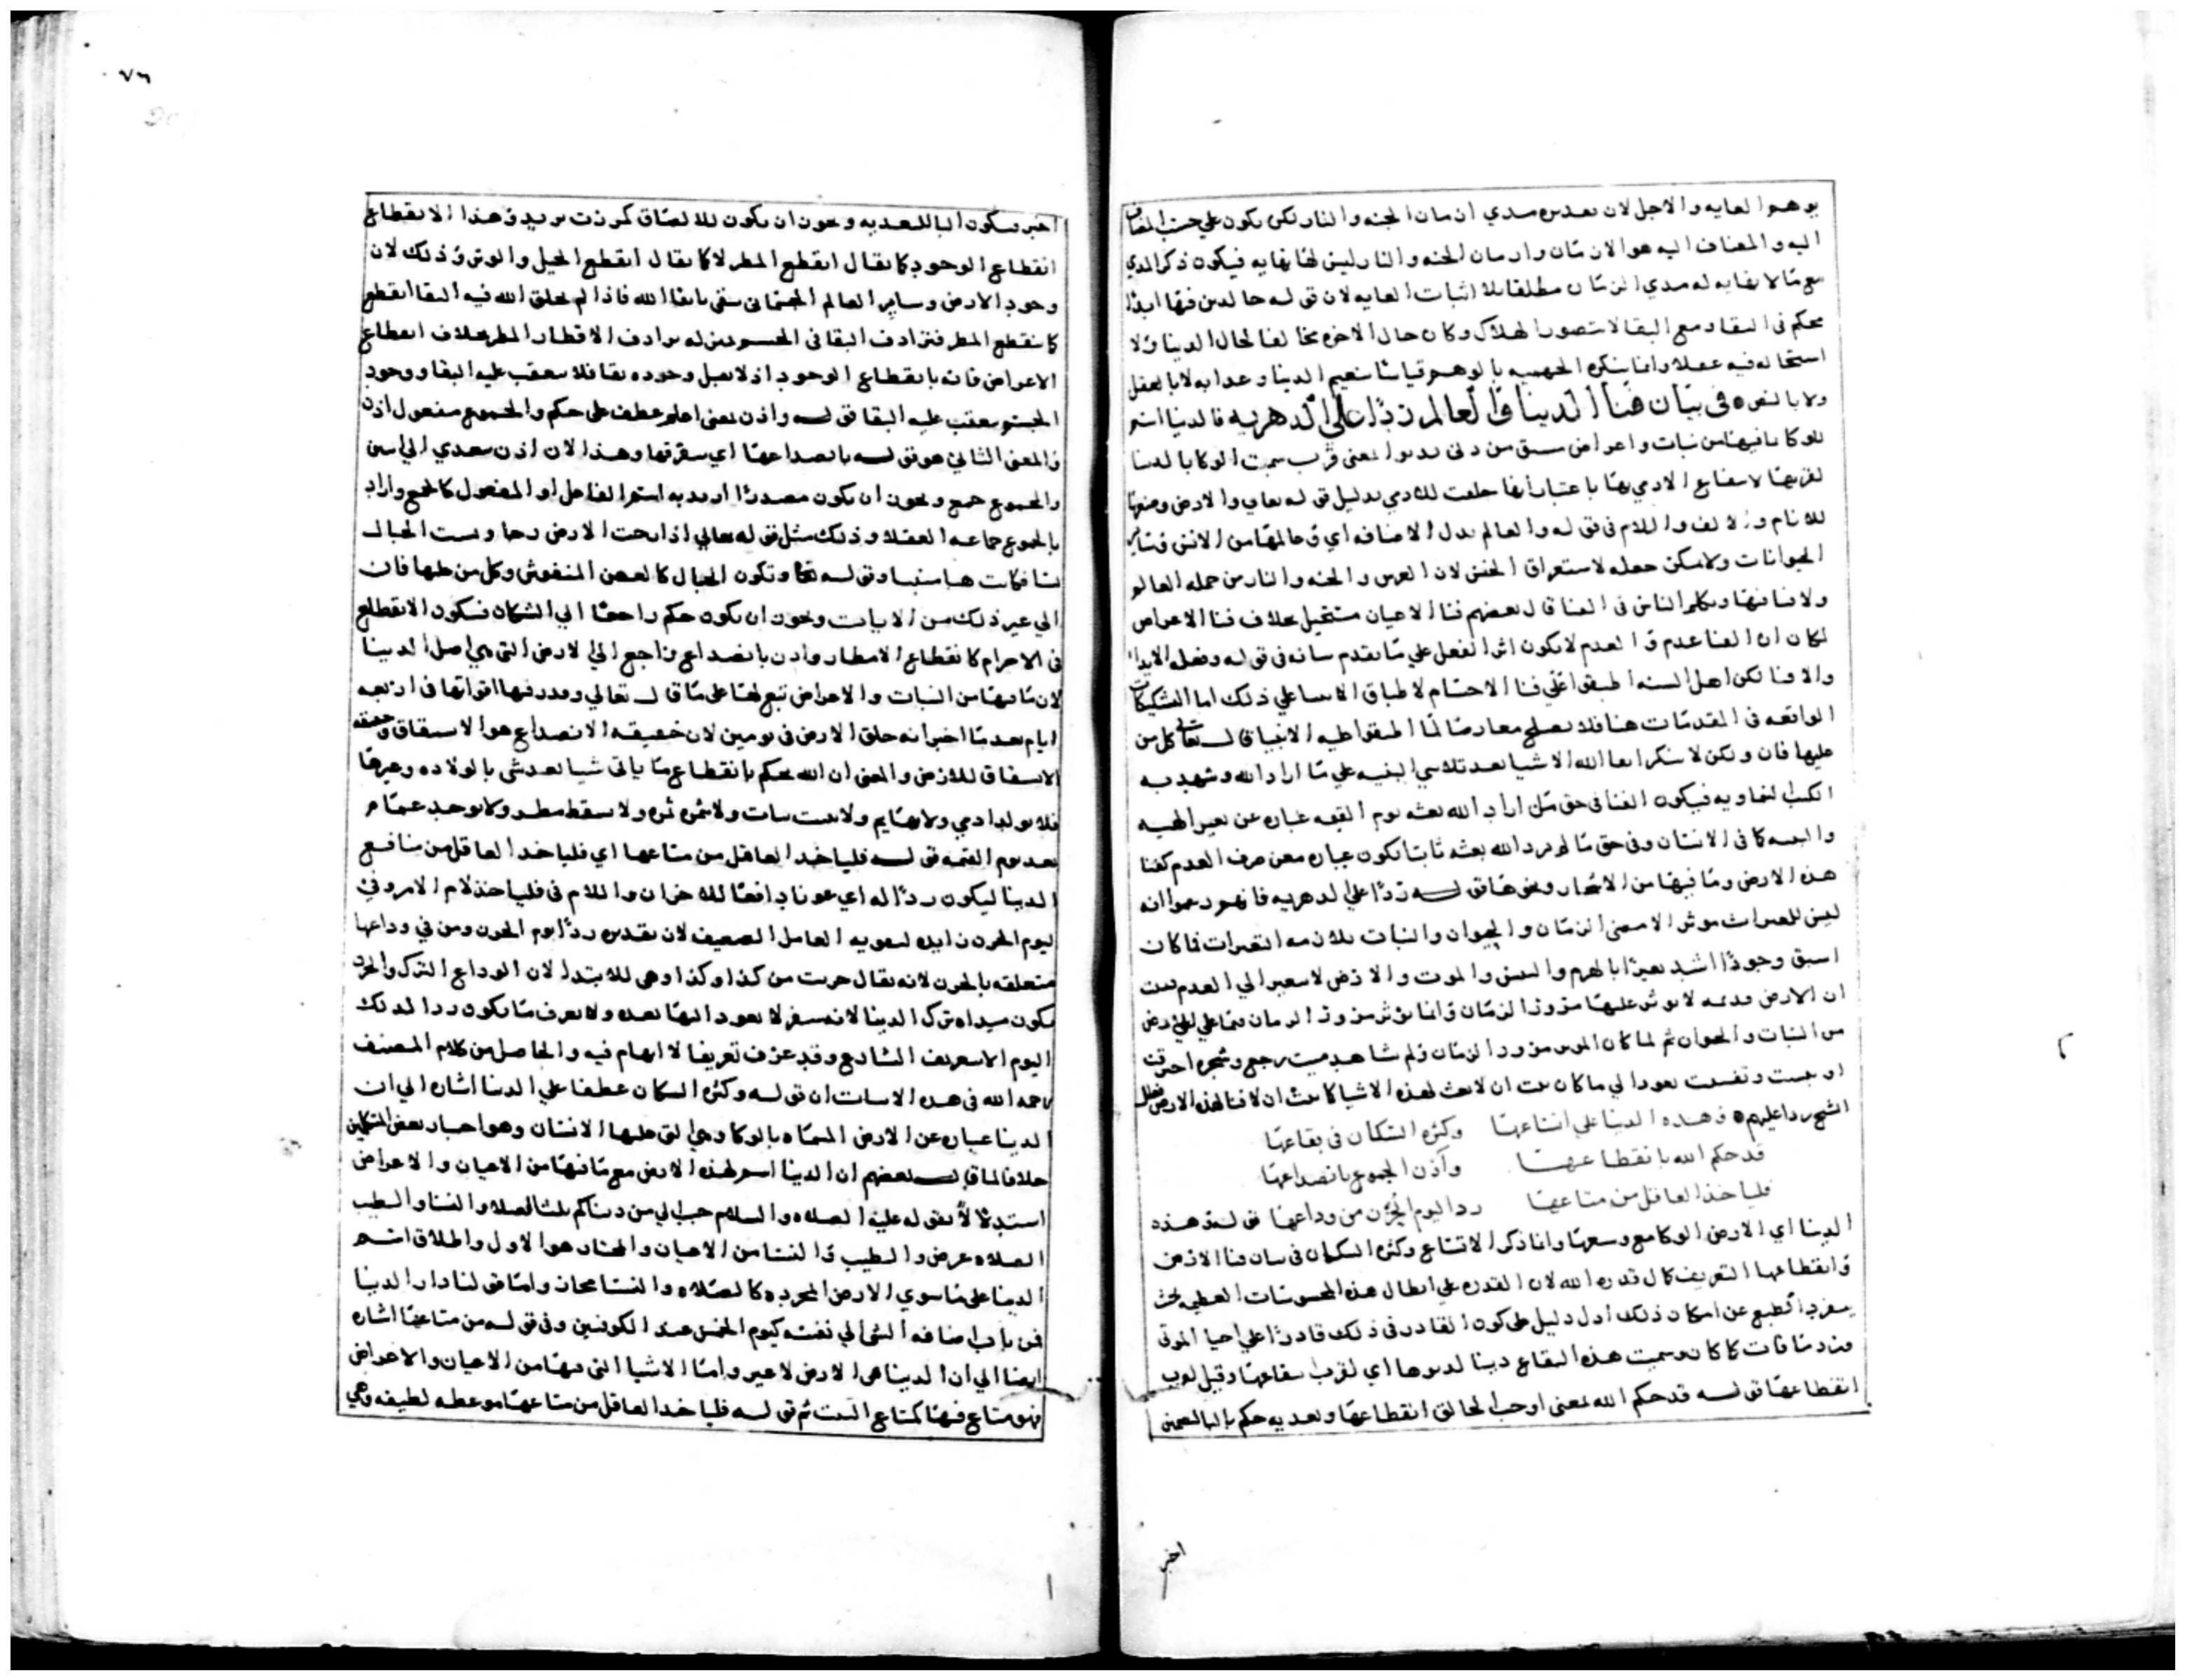 يوهم الغايه والاجل لان تقديره مدي ازمان الجنه والنار لكن يكون علي حسب المضاف
اليه والمضاف اليه هو الازمان وازمان الجنه والنار ليس لها نهايه فيكون ذكر المدي
مع ما لا نهايه له مدي الزمان مطلقا بلا اثبات الغايه لان قوله خالدين فيها ابدا
محكم في البقا ومع البقا لا يتصور الهلاك وكان حال الاخره مخالفا لحال الدنيا ولا
استحاله فيه عقلا وانما ينكره الجهميه بالوهم قياسا بنعيم الدنيا وعذابه لا بالعقل
في بيان فنا الدنيا والعالم ردا علي الدهريه فالدنيا اسم
للوكا بما فيها من نبات واعراض مشتق من دنى يدنوا بمعنى قرب سميت الوكا بالدنيا
لقربها لانتفاع الادمي بها باعتبار انها خلقت للادمي بدليل قوله تعالي والارض وضعها
للانام والالف واللام في قوله والعالم بدل الاضافه اي وعالمها من الانس وساير
الحيوانات ولا يمكن جعله لاستغراق الجنس لان العرش والجنه والنار من جمله العالم
ولا فنا فيها وتكلم الناس في الفنا قال بعضهم فنا الاعيان مستحيل بخلاف فنا الاعراض
لكان ان الفنا عدم والعدم لا يكون اثر الفعل علي ما تقدم بيانه في قوله وفعله الابدا
والافنا لكن اهل السنه اطبقوا على فنا الاجسام لاطباق الانبيا علي ذلك اما التشكيكات
الواقعه في المقدمات هنا فلا تصلح معارضا لما اطبقوا عليه الانبيا قال تعالى كل من
عليها فان ولكن لا ننكر ابقا الله الاشيا بعد تلاشي البنيه علي ما اراد الله وشهد به
الكتب السماويه فيكون الفنا في حق من اراد الله بعثه يوم القيمه عباره عن تغير الهيه
والبنيه كما في الانسان وفي حق ما لم يرد الله بعثه ثابتا يكون عباره عن صرف العدم كفنا
هذه الارض وما فيها من الاشجار ونحوها قوله ردا علي الدهريه فانهم زعموا انه
ليس للتغيرات موثر الا مضي الزمان والحيوان والنبات يلازمه التغيرات فما كان
اسبق وجودا اشد تغيرا بالهرم واليبس والموت والارض لا تتغير الي العدم ثبت
ان الارض قديمه لا يوثر عليها مرور الزمان وانما يوثر مرور الزمان فيما علي الارض
من النبات والحيوان ثم لما كان الموثر مرور الزمان ولم نشاهد ميت رجع وشجره احرقت
او يبست وتفتت تعود الي ما كان ثبت ان لا بعث لهذه الاشيا كما ثبت ان لا فنا لهذه الارض فقال
الشيخ ردا عليهم وهذه الدنيا علي اتساعها وكثره السكان في بقاعها
قد حكم الله بانقطاعها واذن الجموع بانصداعها
فليأخذ العاقل من متاعها ردا ليوم الحزن من وداعها قوله وهذه
الدنيا اي الارض الوكا مع وسعها وانما ذكر الاتساع وكثره السكان في بيان فنا الارض
وانقطاعها التعريف كمال قدره الله لان القدره علي ابطال هذه المحسوسات العظيمه بحيث
ينفرد الطبع عن امكان ذلك ادل دليل على كون القادر في ذلك قادرا علي احيا الموتى
ورد ما فات كما كان وسميت هذه البقاع دنيا لدنوها اي لقرب بقاعها وقيل لقرب
انقطاعها قوله قد حكم الله بمعنى اوجب الخالق انقطاعها وتعديه حكم بالبا لتضمنه
اخبر
٧٦
اخبر وتكون البا للتعديه ويجوز ان يكون للالصاق كمررت بزيد وهذا الانقطاع
انقطاع الوجود كما يقال انقطع المطر لا كما يقال انقطع الحبل والوتر وذلك لان
وجود الارض وساير العالم الجسماني يبقى بابقا الله فاذا لم يخلق الله فيه البقا انقطع
كما ينقطع المطر فترادف البقا في المحسوس بمنزله ترادف الاقطار المطر بخلاف انقطاع
الاعراض فانه بانقطاع الوجود اذ لا يقبل وجوده بقا فلا يتعقب عليه البقا ووجود
الجسم يتعقب عليه البقا قوله واذن بمعنى اعلم عطف على حكم والجموع مفعول اذن
والمعنى الثاني هو قوله بانصداعها اي بتفرقها وهذا لان اذن يتعدي الى اثنين
والجموع جمع ويجوز ان يكون مصدرا اريد به اسم الفاعل او المفعول كالجمع واراد
بالجموع جماعه العقلا وذلك مثل قوله تعالي اذا رجت الارض رجا وبست الجبال
بسا فكانت هبا منبثا وقوله تعا وتكون الجبال كالعهن المنفوش وكل من عليها فان
الي غير ذلك من الايات ويجوز ان يكون حكم راجعا الي السكان فيكون الانقطاع
في الاجرام كانقطاع الامطار واذن بانصداع راجع الي الارض التي هي اصل الدنيا
لان ما فيها من النبات والاعراض تبع لها على ما قال تعالي وقدر فيها اقواتها في اربعه
ايام بعد ما اخبر انه خلق الارض في يومين لان حقيقه الانصداع هو الانشقاق وحقيقه
الانشقاق للارض والمعنى ان الله يحكم بانقطاع ما ياتي شيا بعد شي بالولاده وغيرها
فلا يولد ادمي ولا بهايم ولا ينبت نبات ولا يثمر ثمره ولا يسقط مطر ولا يوجد عمام
بعد يوم القيمه قوله فلياخذ العاقل من متاعها اي فلياخذ العاقل من منافع
الدنيا ليكون ردا له اي عونا دافعا للاحزان واللام في فلياخذ لام الامر وفي
ليوم الحزن زايده لتقويه العامل الضعيف لان تقديره ردا يوم الحزن ومن في وداعها
متعلقه بالحزن لانه يقال حزنت من كذا وكذا وهي للابتدا لان الوداع الترك والحزن
يكون مبداه ترك الدنيا لانه سفر لا يعود اليها بعده ولا يعرف ما يكون ردا لذلك
اليوم الا بتعريف الشارع وقد عرف تعريفا لا ابهام فيه والحاصل من كلام المصنف
رحمه الله في هذه الابيات ان قوله وكثره السكان عطفا علي الدنيا اشاره الي ان
الدنيا عباره عن الارض المسماه بالوكا وهي التي عليها الانسان وهو اختيار بعض المتكلمين
خلافا لما قال بعضهم ان الدنيا اسم لهذه الارض مع ما فيها من الاعيان والاعراض
استدلالا بقوله عليه الصلاه والسلام حبب الي من دنياكم ثلث الصلاه والنسا والطيب
الصلاه عرض والطيب والنسا من الاعيان والمختار هو الاول واطلاق اسم
الدنيا على ما سوي الارض المجرده كالصلاه والنسا مجاز واما قولنا دار الدنيا
فمن باب اضافه الشي الي نفسه كيوم الخميس عند الكوفيين وفي قوله من متاعها اشاره
ايضا الي ان الدنيا هي الارض لا غير واما الاشيا التي فيها من الاعيان والاعراض
فهو متاع فيها كمتاع البيت ثم قوله فلياخذ العاقل من متاعها موعظه لطيفه وهي